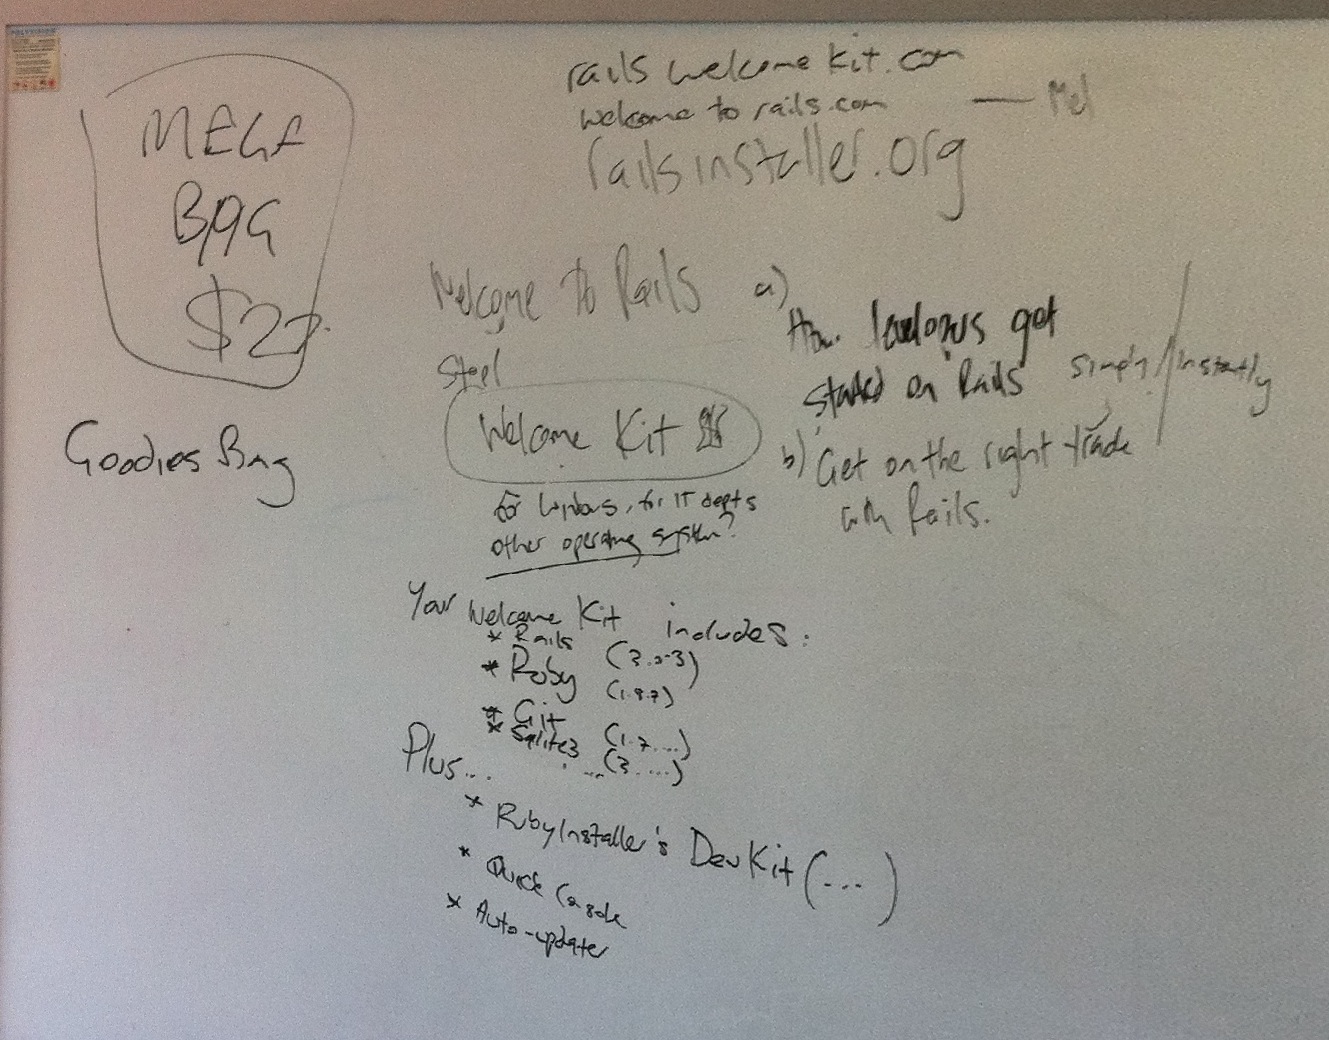 MEGA
BAG
$27
Goodies Bag
rails welcome kit.com
welcome to rails.com — Mel
railsinstaller.org
Welcome to Rails
Steel
Welcome Kit
for Windows, for IT depts
other operating system?
a)
How get
started on Rails simply/instantly
b) Get on the right
with Rails.
Your Welcome Kit includes:
* Rails (3.0.3)
* Ruby (1.8.7)
* Git (1.7....)
* Sqlite3 ...(3.....)
Plus...
* RubyInstaller's DevKit (...)
* Quick Console
* Auto-update